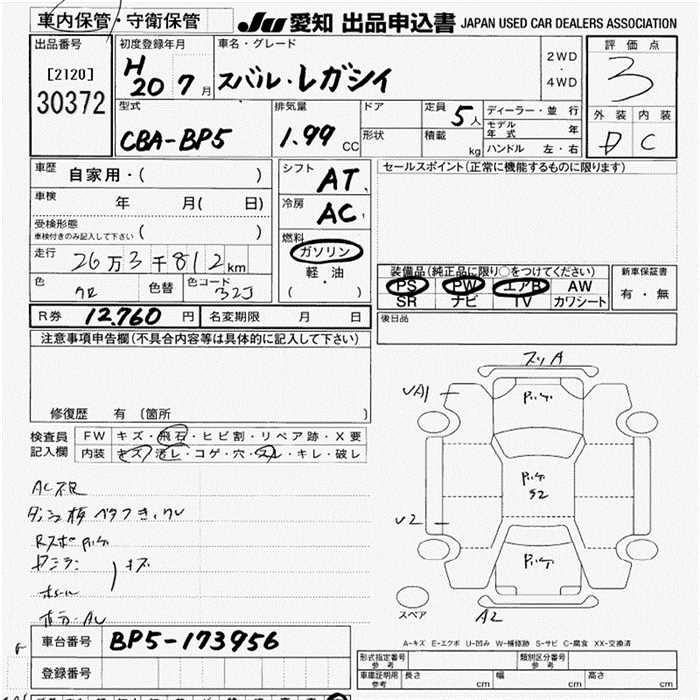 車内保管・守衛保管 JU 愛知 出品申込書 JAPAN USED CAR DEALERS ASSOCIATION
出品番号 初度登録年月 車名・グレード 評価点
[2120] 30372 H20 7月 スバル・レガシィ 2WD・4WD 3
型式 排気量 ドア 定員 5人 ディーラー・並行 外装 内装
CBA-BP5 1.99 CC 形状 積載 kg モデル年式 年 D C
ハンドル 左・右
車歴 自家用・( ) シフト AT セールスポイント(正常に機能するものに限ります)
車検 年 月( 日) 冷房 AC
受検形態
車検付きのみ記入して下さい ( )
燃料 ガソリン
軽・油
( )
走行 26万3千812km
色 クロ 色替 色コード 32J
装備品(純正品に限り○をつけてください) 新車保証書
PS PW エアB AW 有・無
SR ナビ TV カワシート
R券 12,760円 名変期限 月 日 後日品
注意事項申告欄(不具合内容等は具体的に記入して下さい)
修復歴 有(箇所 )
検査員記入欄 FW キズ・飛石・ヒビ割・リペア跡・X要
内装 キズ・汚レ・コゲ・穴・スレ・キレ・破レ
AC不良
キズ
スリA
UA1
U2
A2
スペア
A-キズ E-エクボ U-凹み W-補修跡 S-サビ C-腐食 XX-交換済
車台番号 BP5-173956
登録番号
形式指定番号 参考 類別区分番号 参考
車庫証明用 参考 長さ cm 幅 cm 高さ cm